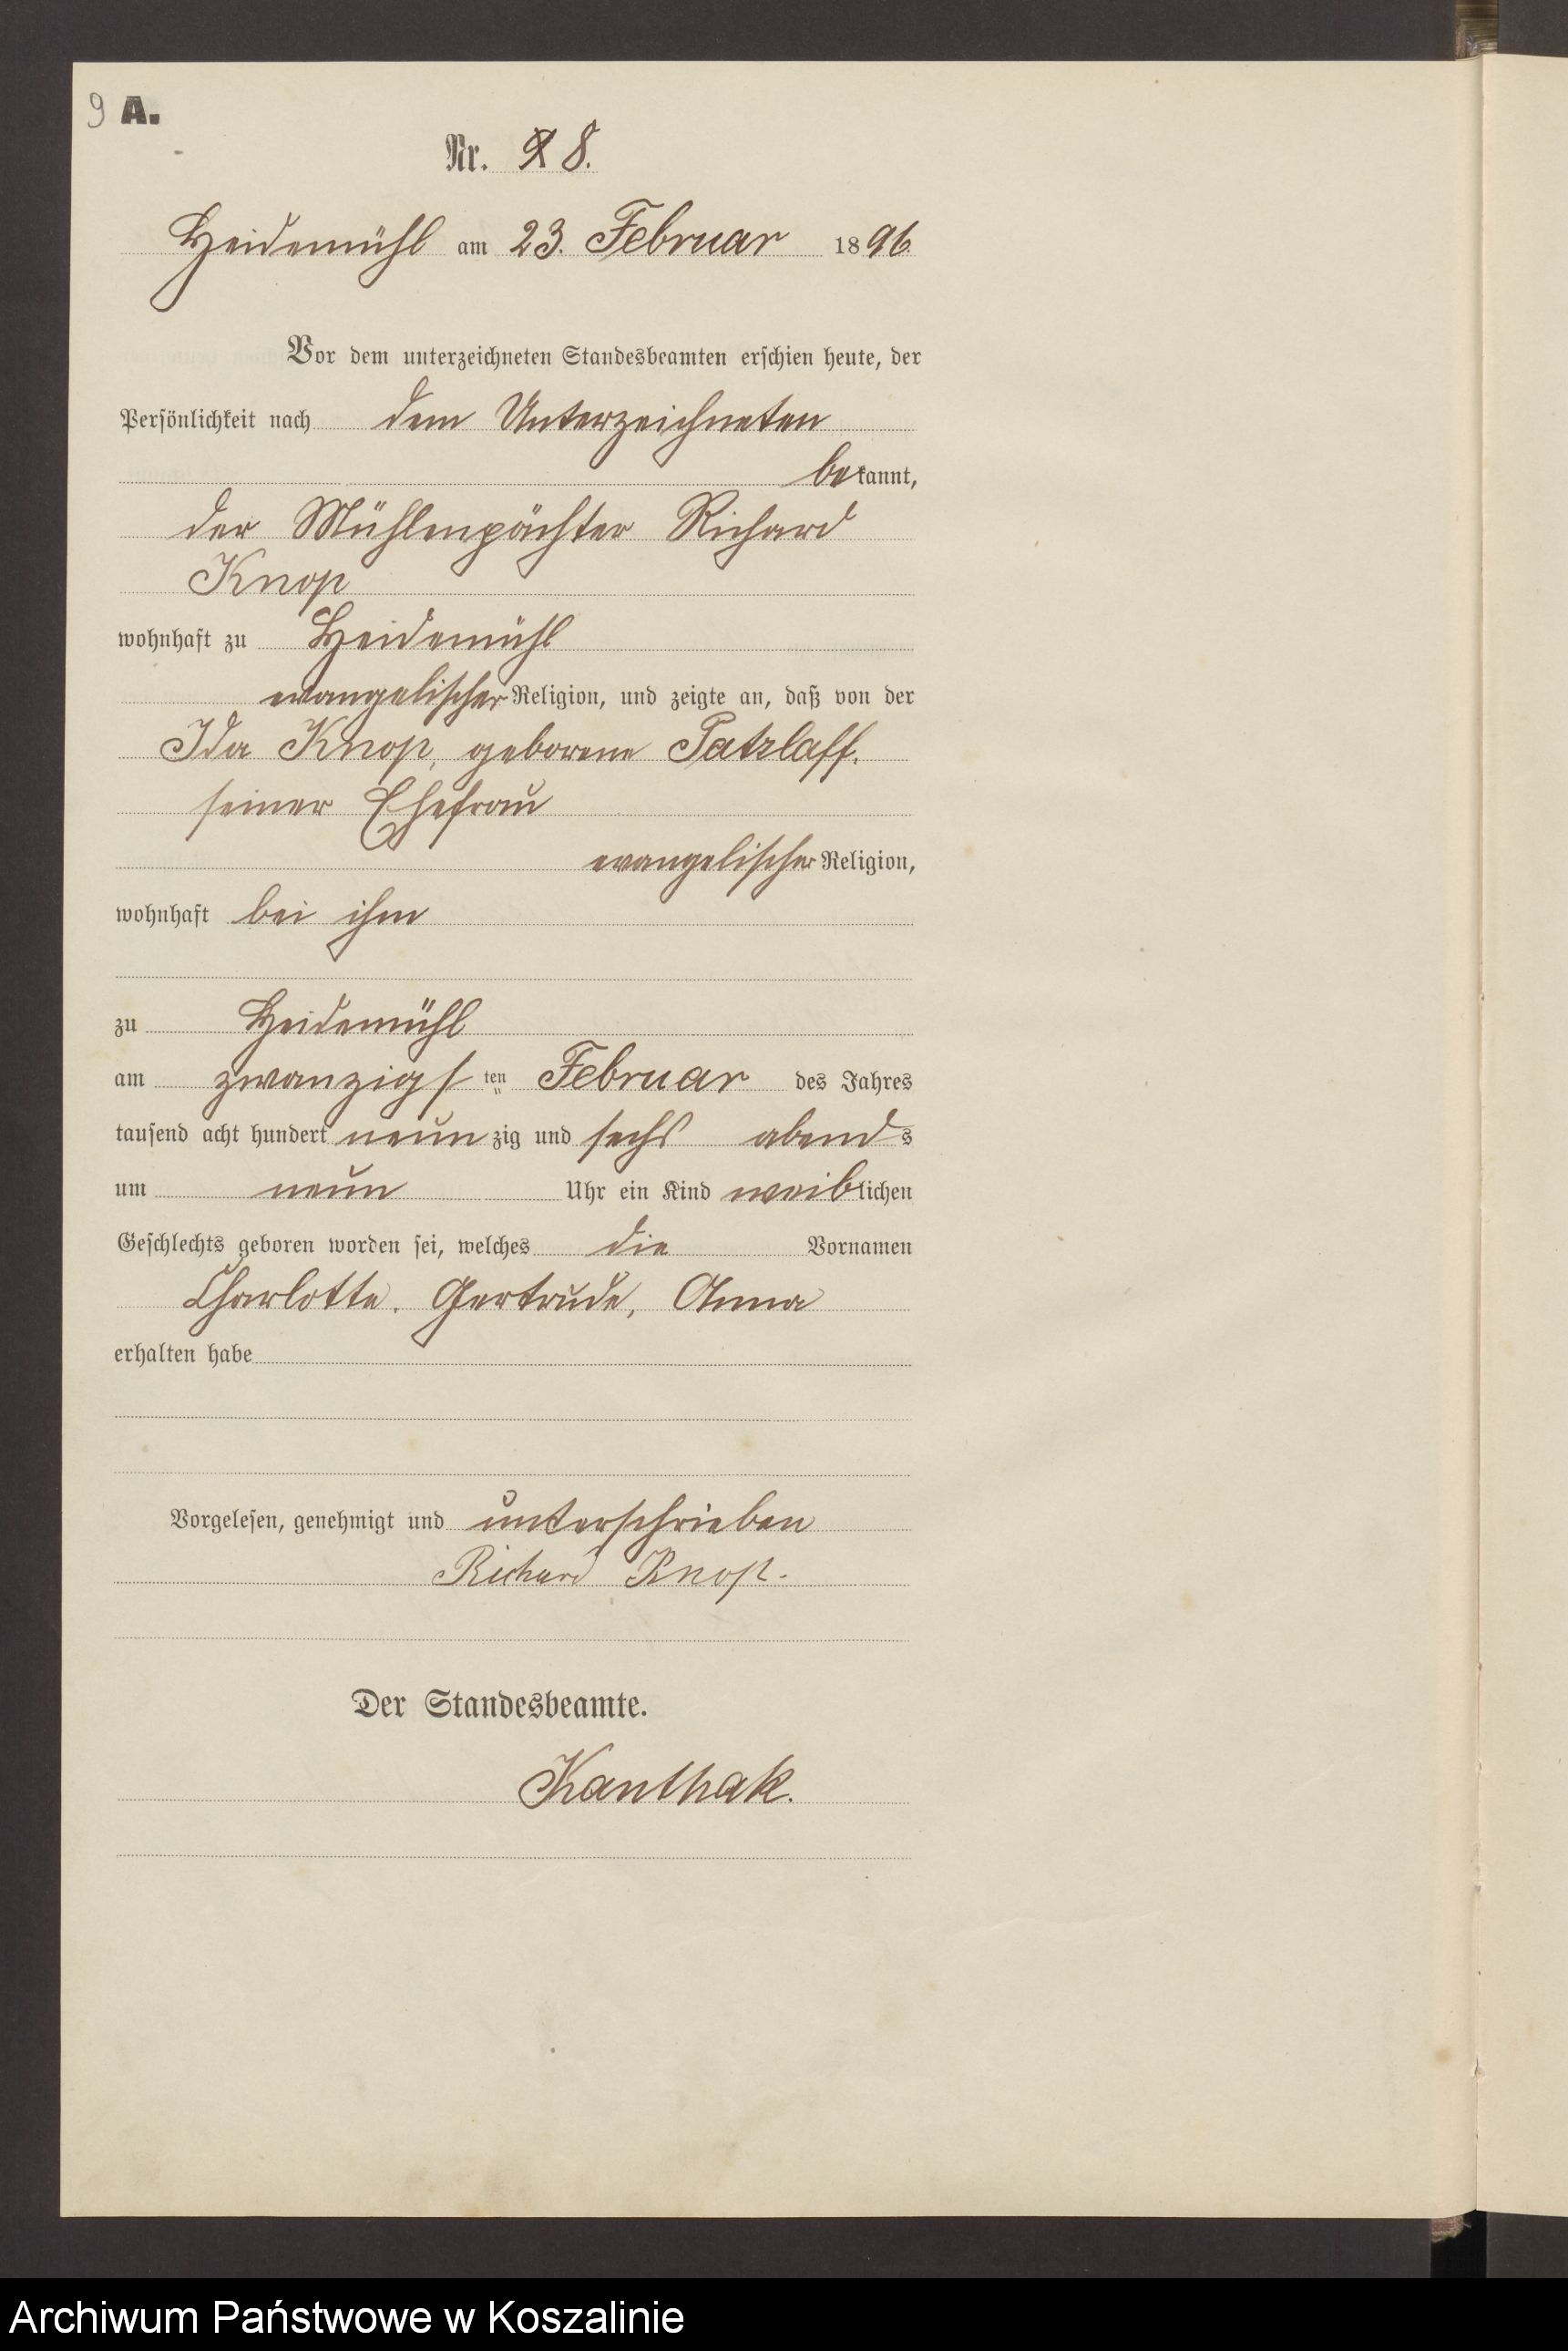 9 A.
Nr. 9 8.
Heidemühl am 23. Februar 1896.
Vor dem unterzeichneten Standesbeamten erschien heute, der
Persönlichkeit nach dem Unterzeichneten
bekannt,
der Mühlenpächter Richard
Knop
wohnhaft zu Heidemühl
evangelischer Religion, und zeigte an, daß von der
Ida Knop, geborene Patzlaff.
seiner Ehefrau
evangelischer Religion,
wohnhaft bei ihm
zu Heidemühl
am zwanzigsten Februar des Jahres
tausend acht hundert neunzig und sechs abends
um neun Uhr ein Kind weiblichen
Geschlechts geboren worden sei, welches die Vornamen
Charlotte. Gertrude, Anna
erhalten habe
Vorgelesen, genehmigt und unterschrieben
Richard Knop.
Der Standesbeamte.
Kanthak.
Archiwum Państwowe w Koszalinie